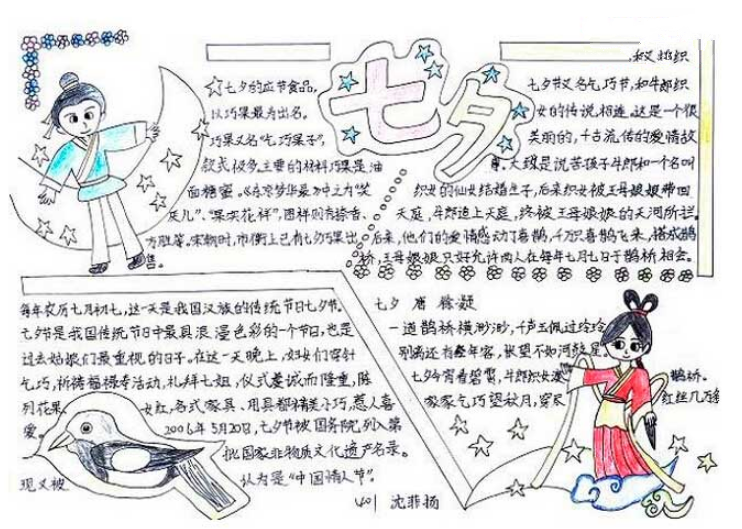 七夕
七夕的应节食品,
以巧果最为出名。
巧果又名"乞巧果子",
款式极多。主要的材料巧果是油
面糖蜜。《东京梦华录》中之为"笑
厌儿"、"果实花样",图样则有捺香、
方胜等。宋朝时,市街上已有七夕巧果出
售。
七夕节又名乞巧节,和牛郎织
女的传说相连。这是一个很
美丽的,千古流传的爱情故
事。大致是说苦孩子牛郎和一个名叫
织女的仙女结婚生子,后来织女被王母娘娘带回
天庭,牛郎追上天庭,终被王母娘娘的天河所拦。
后来,他们的爱情感动了喜鹊,千万只喜鹊飞来,搭成鹊
桥,王母娘娘只好允许两人在每年七月七日于鹊桥相会。
每年农历七月初七,这一天是我国汉族的传统节日七夕节。
七夕节是我国传统节日中最具浪漫色彩的一个节日,也是
过去姑娘们最重视的日子。在这一天晚上,妇女们穿针
乞巧,祈祷福禄寿活动,礼拜七姐,仪式虔诚而隆重,陈
列花果、女红,各式家具、用具都精美小巧,惹人喜
爱。2006年5月20日,七夕节被国务院列入第
批国家非物质文化遗产名录。
现又被认为是"中国情人节"。
七夕 唐 徐凝
一道鹊桥横渺渺,千声玉佩过玲玲
别离还有经年客,怅望不如河鼓星。
七夕今宵看碧霄,牛郎织女渡鹊桥。
家家乞巧望秋月,穿尽红丝几万条
401 沈菲扬